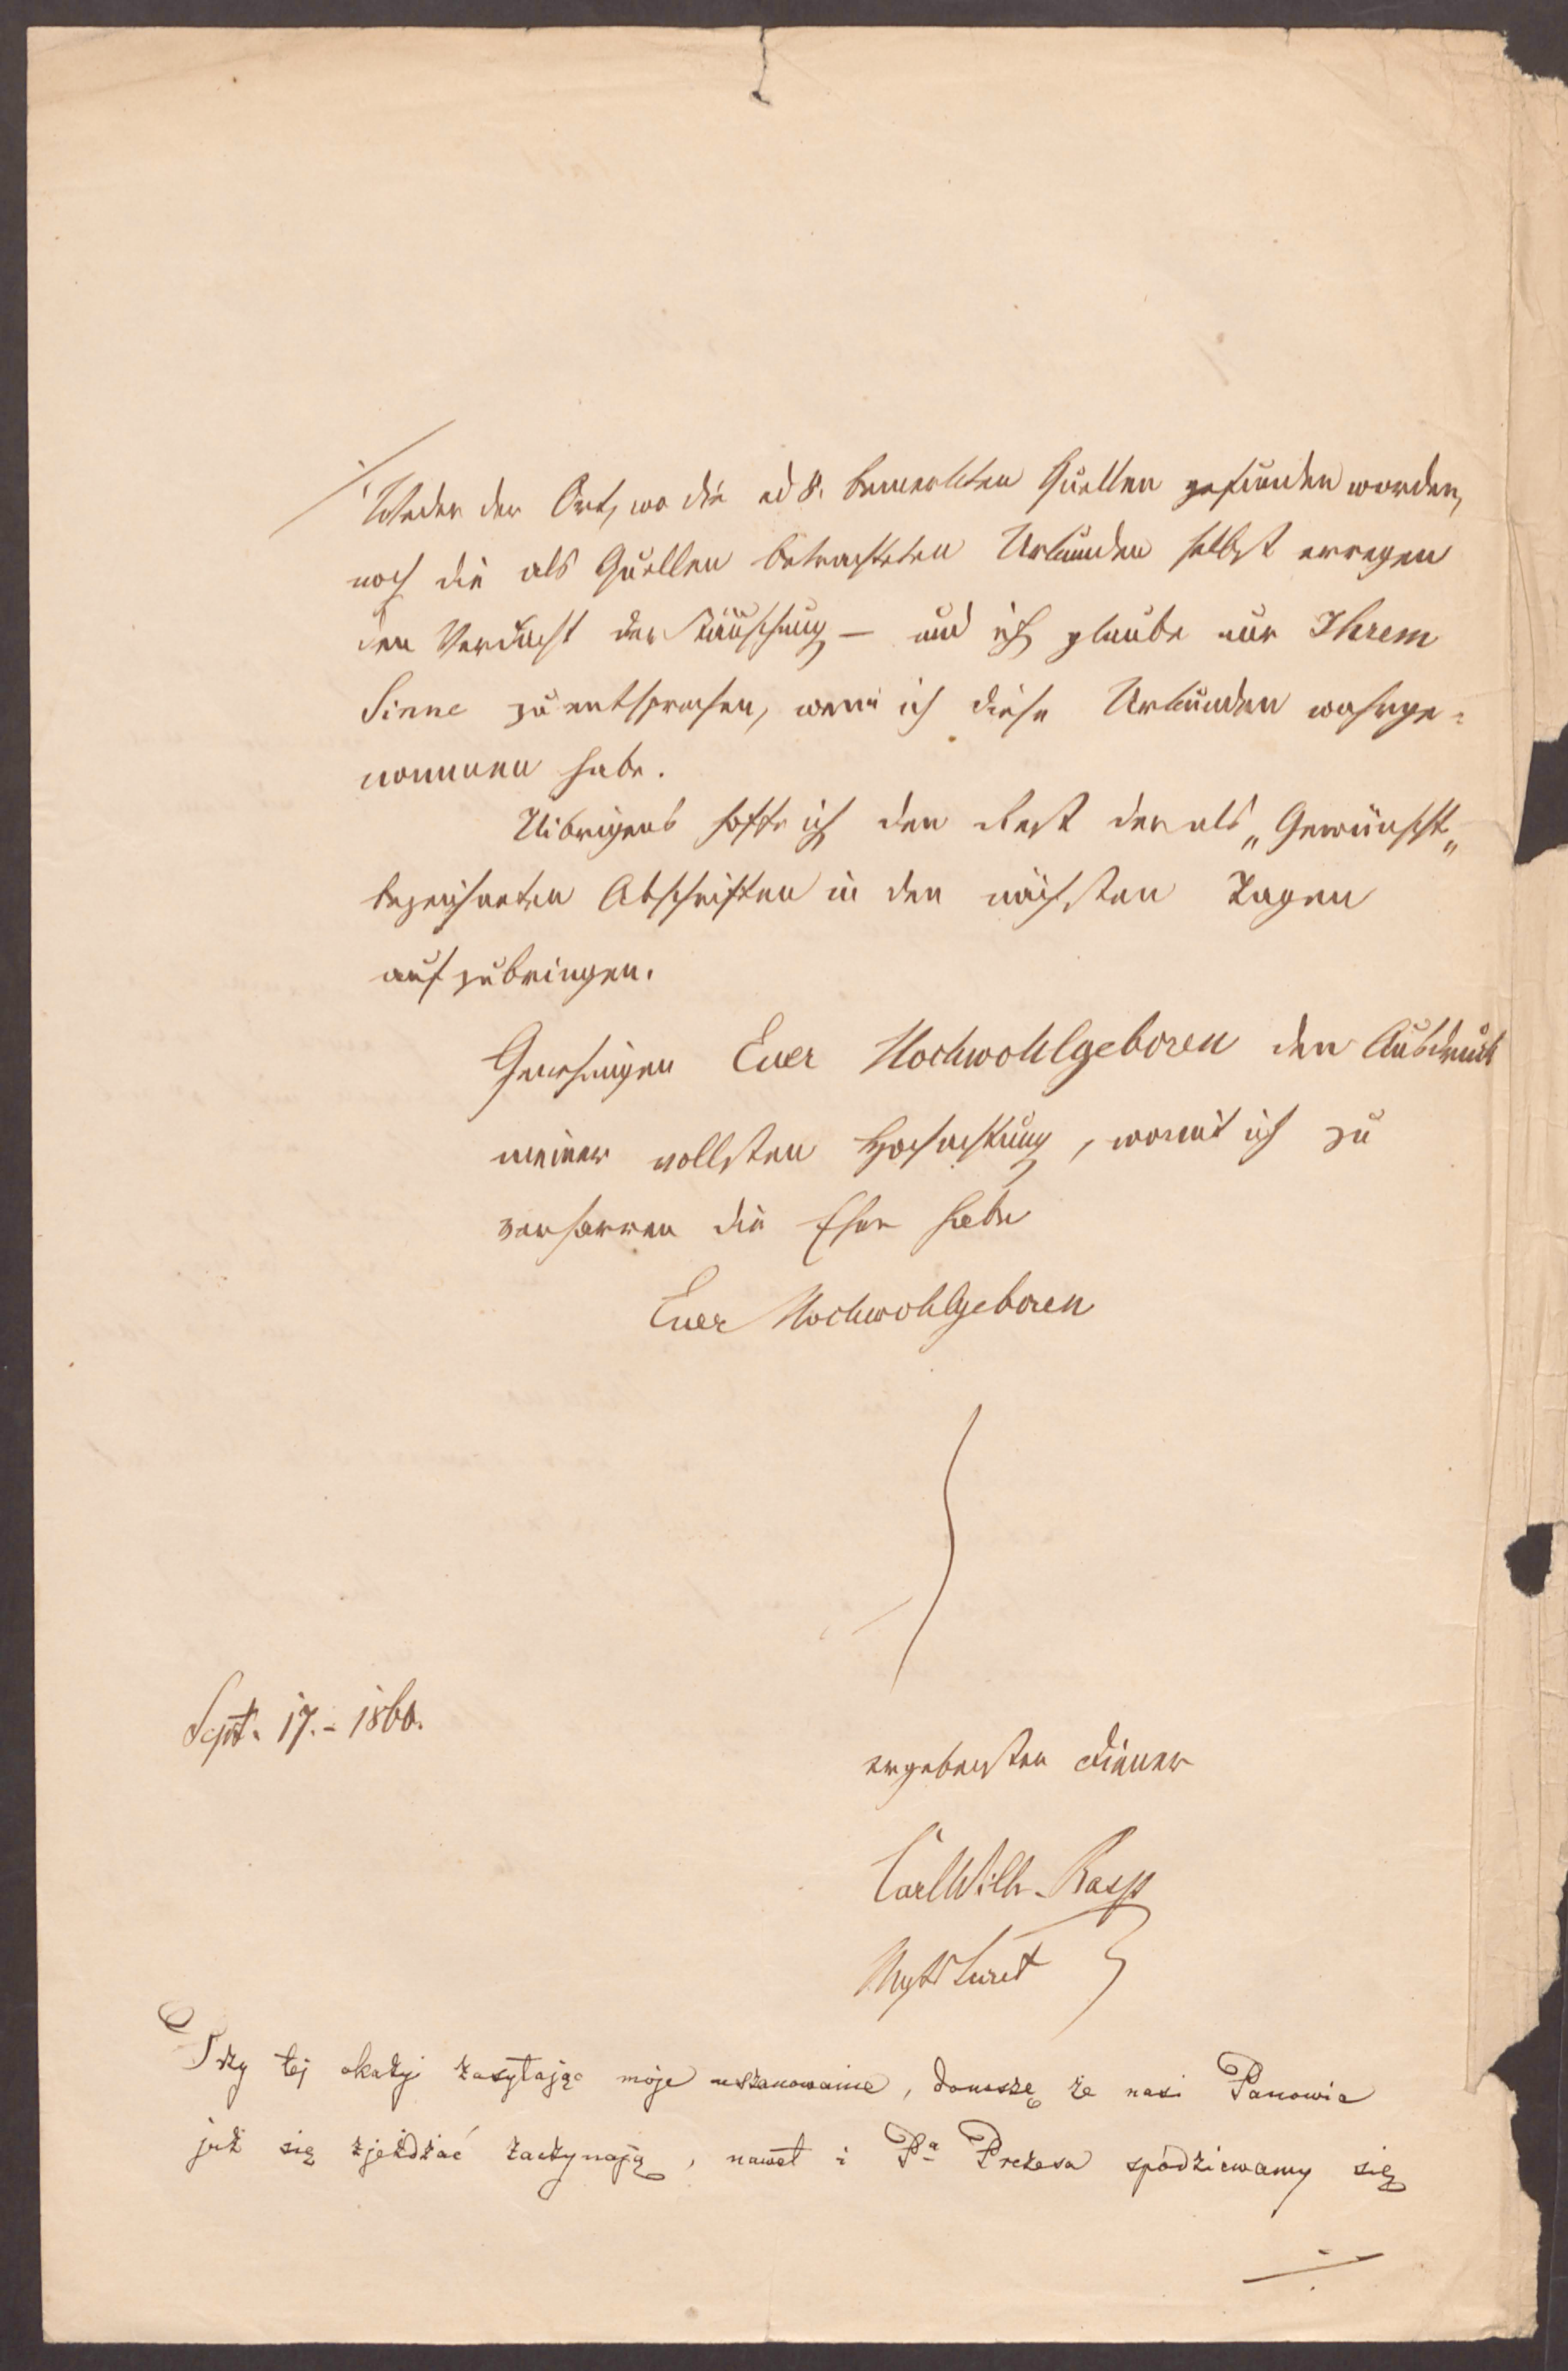 Weder der Ort, wo die ad 8. bemerkten Quellen gefunden worden,
noch die als Quellen betrachteten Urkunden selbst erregen
den Verdacht der Täuschung — und ich glaube nur Ihrem
Sinne zu entsprechen, wenn ich diese Urkunden wahrge-
nommen habe.
Uibrigens hoffe ich den Rest der als „Gewünscht„
bezeichneten Abschriften in den nächsten Tagen
aufzubringen.
Genehmigen Euer Hochwohlgeboren den Ausdruck
meiner vollsten Hochachtung, womit ich zu
verharren die Ehre habe
Euer Hochwohlgeboren
Sept. 17. - 1860.
ergebensten Diener
Carl Wilh. Rasp
Przy tej okazyi zasyłając moje uszanowanie, donoszę że nasi Panowie
już się zjeżdżać zaczynają, nawet i Pa Prezesa spodziewamy się